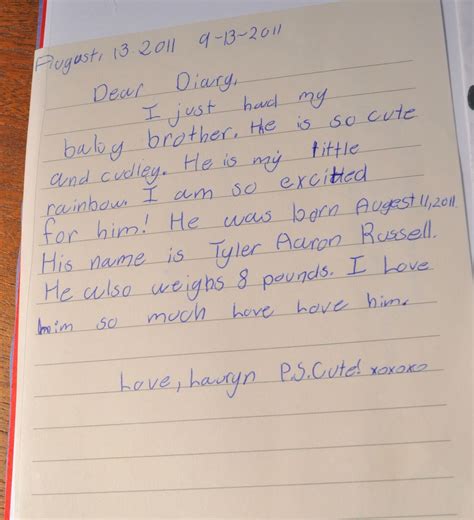 Augast, 13 2011 9-13-2011
Dear Diary,
I just had my
baby brother. He is so cute
and cudley. He is my little
rainbow. I am so excited
for him! He was born Augest 11, 2011.
His name is Tyler Aaron Russell.
He also weighs 8 pounds. I Love
him so much Love Love him.
Love, Lauryn P.S. Cute! xoxoxo